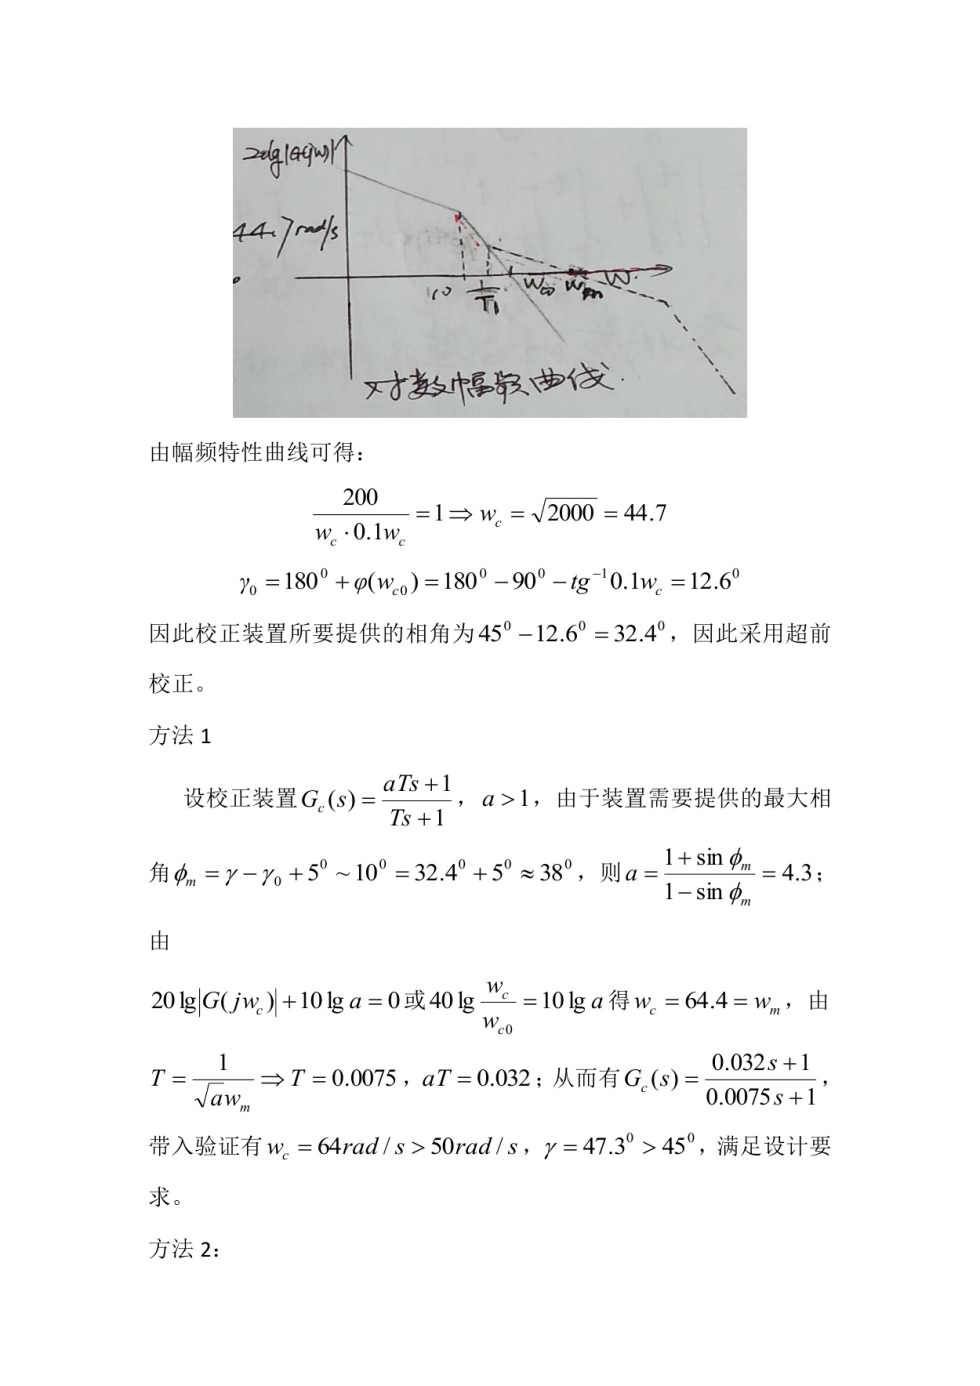 20lg|G(jw)|
44.7rad/s
0
10 1/T1 Wco Wm W
对数幅频曲线.
由幅频特性曲线可得：
200/(w_c·0.1w_c) = 1 ⇒ w_c = √2000 = 44.7
γ₀ = 180⁰ + φ(w_c0) = 180⁰ − 90⁰ − tg⁻¹0.1w_c = 12.6⁰
因此校正装置所要提供的相角为45⁰ − 12.6⁰ = 32.4⁰，因此采用超前
校正。
方法 1
设校正装置G_c(s) = (aTs + 1)/(Ts + 1)，a > 1，由于装置需要提供的最大相
角ϕ_m = γ − γ₀ + 5⁰ ~ 10⁰ = 32.4⁰ + 5⁰ ≈ 38⁰，则a = (1 + sin ϕ_m)/(1 − sin ϕ_m) = 4.3；
由
20lg|G(jw_c)| + 10lg a = 0或40lg w_c/w_c0 = 10lg a得w_c = 64.4 = w_m，由
T = 1/(√a w_m) ⇒ T = 0.0075，aT = 0.032；从而有G_c(s) = (0.032s + 1)/(0.0075s + 1)，
带入验证有w_c = 64rad / s > 50rad / s，γ = 47.3⁰ > 45⁰，满足设计要
求。
方法 2：